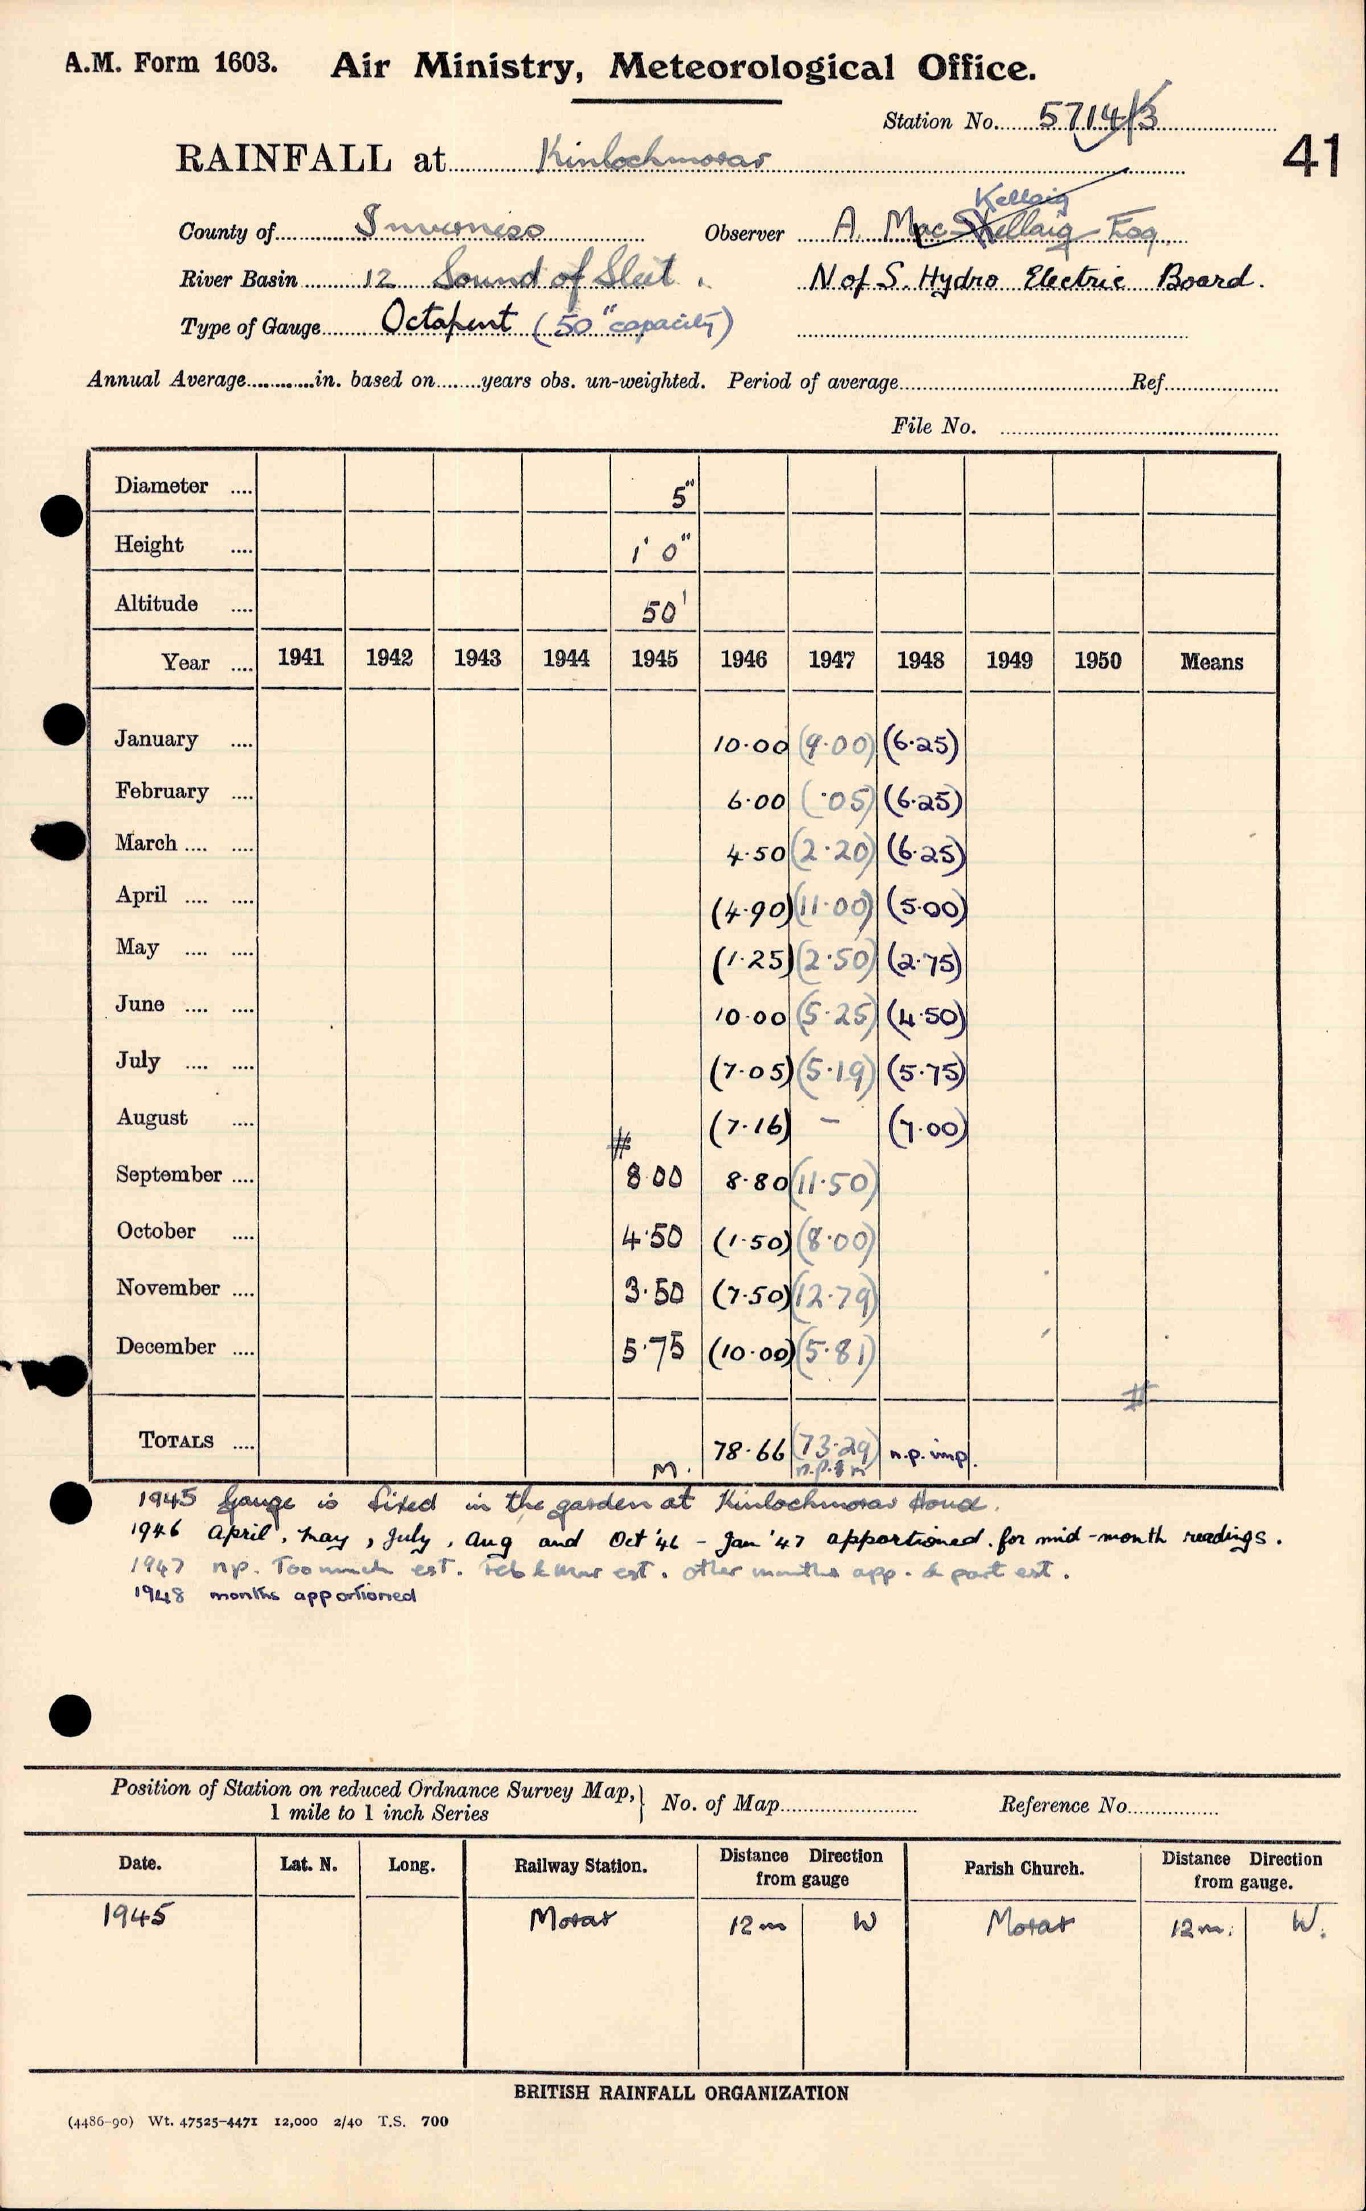 A.M. Form 1603. Air Ministry, Meteorological Office.
Station No. 5714/3
41
RAINFALL at Kinlochmorar
Kellaig
County of Inverness Observer A. Mac Kellaig Esq.
River Basin 12 Sound of Sleat. N of S. Hydro Electric Board.
Type of Gauge Octapent (50" capacity)
Annual Average............in. based on........years obs. un-weighted. Period of average Ref.
File No.
Diameter .... 5"
Height .... 1' 0"
Altitude .... 50'
Year .... 1941 1942 1943 1944 1945 1946 1947 1948 1949 1950 Means
January .... 10.00 (9.00) (6.25)
February .... 6.00 (.05) (6.25)
March .... .... 4.50 (2.20) (6.25)
April .... .... (4.90) (11.00) (5.00)
May .... .... (1.25) (2.50) (2.75)
June .... .... 10.00 (5.25) (4.50)
July .... .... (7.05) (5.19) (5.75)
August .... # (7.16) – (7.00)
September .... 8.00 8.80 (11.50)
October .... 4.50 (1.50) (8.00)
November .... 3.50 (7.50) (12.79)
December .... 5.75 (10.00) (5.81)
#
TOTALS .... 78.66 (73.29) n.p. imp.
M.
1945 Gauge is fixed in the garden at Kinlochmorar House.
1946 April, May, July, Aug and Oct '46 – Jan '47 apportioned for mid-month readings.
1947 n.p. Too much est. Feb & Mar est. other months app. & part est.
1948 months apportioned
Position of Station on reduced Ordnance Survey Map, } No. of Map Reference No.
1 mile to 1 inch Series
Date. Lat. N. Long. Railway Station. Distance Direction from gauge Parish Church. Distance Direction from gauge.
1945 Morar 12m W Morar 12m. W.
BRITISH RAINFALL ORGANIZATION
(4486-90) Wt. 47525-4471 12,000 2/40 T.S. 700